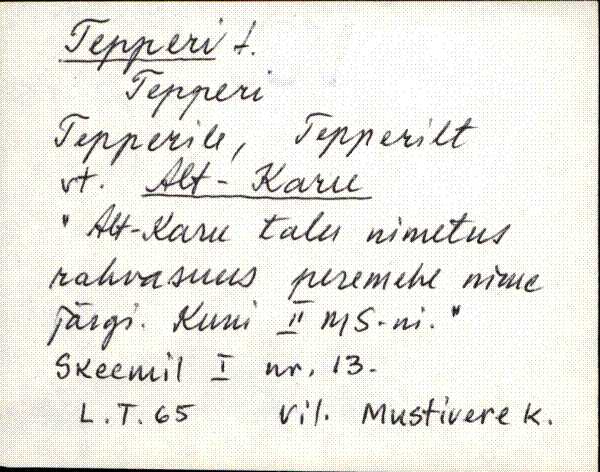 Tepperi t.
Tepperi
Tepperile, Tepperilt
vt. Alt-Karu
"Alt-Karu talu nimetus
rahvasuus peremehe nime
järgi. Kuni II MS-ni."
Skeemil I nr. 13.
L.T. 65 Vil. Mustivere k.